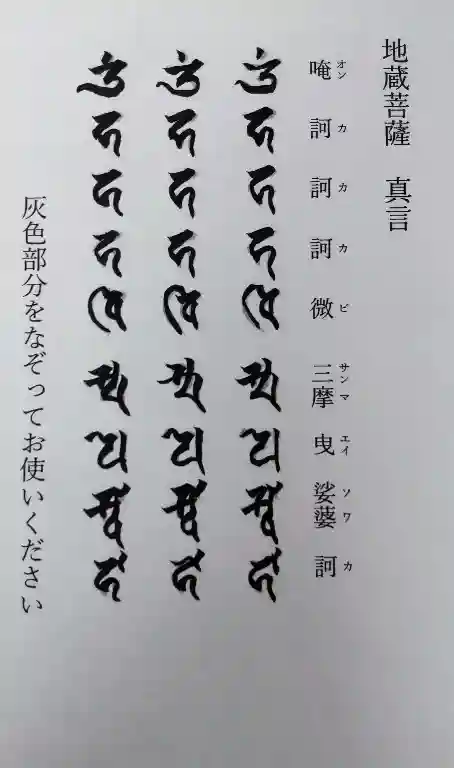 地蔵菩薩　真言
オン カ カ カ ビ サンマ エイ ソワ カ
唵 訶 訶 訶 微 三摩 曳 娑婆 訶
𑖌𑖼 𑖮 𑖮 𑖮 𑖪𑖰 𑖭𑖿𑖦 𑖧𑖸 𑖭𑖿𑖪𑖯 𑖮𑖯
𑖌𑖼 𑖮 𑖮 𑖮 𑖪𑖰 𑖭𑖿𑖦 𑖧𑖸 𑖭𑖿𑖪𑖯 𑖮𑖯
𑖌𑖼 𑖮 𑖮 𑖮 𑖪𑖰 𑖭𑖿𑖦 𑖧𑖸 𑖭𑖿𑖪𑖯 𑖮𑖯
灰色部分をなぞってお使いください